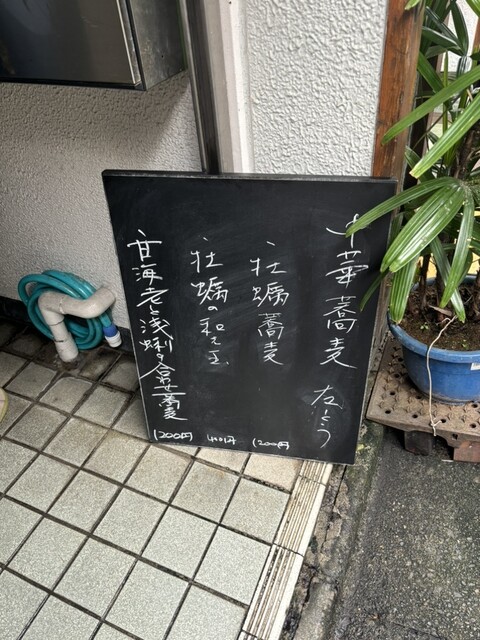 中華蕎麦
牡蠣蕎麦 1200円
牡蠣の和え玉 400円
甘海老と浅蜊の合せ蕎麦 1200円